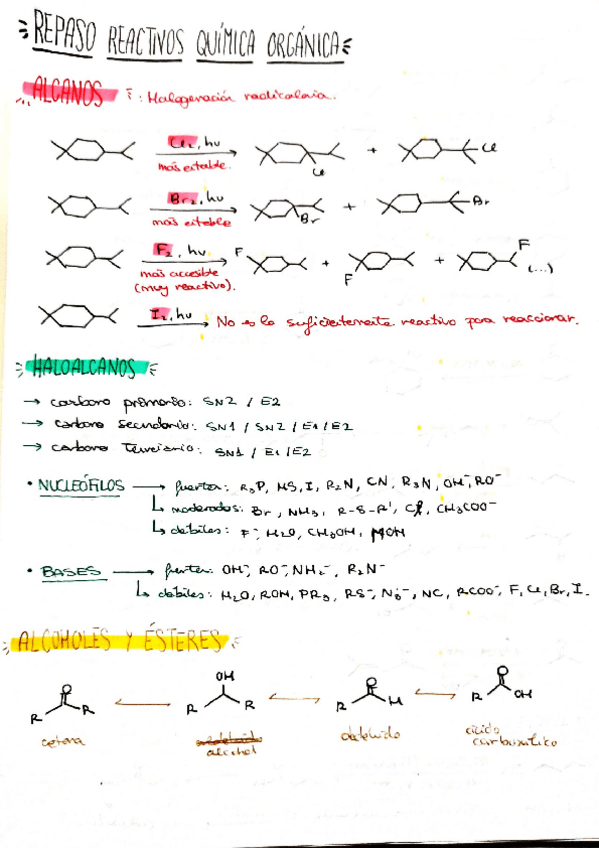 REPASO REACTIVOS QUÍMICA ORGÁNICA
ALCANOS : Halogenación radicalaria.
Cl₂, hν
más estable.
+
Cl
Cl
Br₂, hν
más estable
+
Br
Br
F₂, hν
más accesible
(muy reactivo).
F
+
F
+
F
(...)
I₂, hν
No es lo suficientemente reactivo para reaccionar.
HALOALCANOS
→ carbono primario: SN2 / E2
→ carbono secundario: SN1 / SN2 / E1 / E2
→ carbono terciario: SN1 / E1 / E2
• NUCLEÓFILOS → fuertes: R₃P, HS, I, R₂N, CN, R₃N, OH⁻, RO⁻
↳ moderados: Br, NH₃, R-S-R', Cl, CH₃COO⁻
↳ débiles: F⁻, H₂O, CH₃OH, ROH
• BASES → fuertes: OH⁻, RO⁻, NH₂⁻, R₂N⁻
↳ débiles: H₂O, ROH, PR₃, RS⁻, N₃⁻, NC, RCOO⁻, F, Cl, Br, I.
ALCOHOLES Y ÉSTERES
O
R R
cetona
OH
R R
alcohol
O
R H
aldehído
O
R OH
ácido
carboxílico